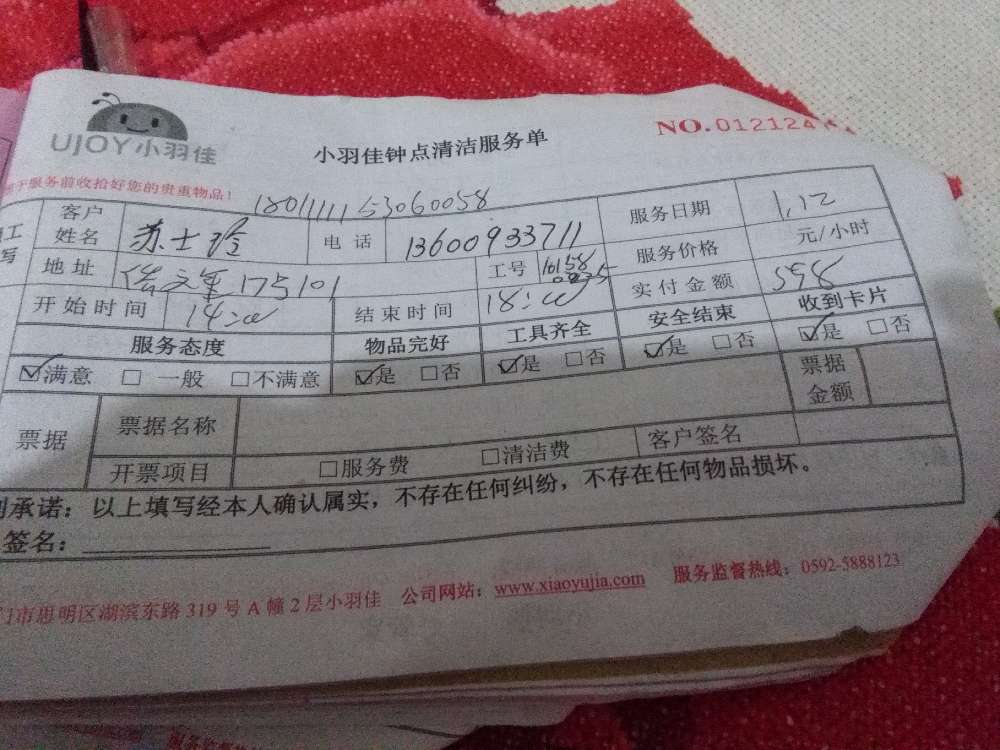 UJOY小羽佳
小羽佳钟点清洁服务单
NO.012124
于服务前收拾好您的贵重物品！
180111153060058
工
写
客户
姓名
苏士玲
电话
13600933711
服务日期
1.12
地址
175101
工号
服务价格
元/小时
开始时间
14:00
结束时间
18:00
实付金额
598
服务态度
物品完好
工具齐全
安全结束
收到卡片
☑满意 □ 一般 □不满意
☑是 □否
☑是 □否
☑是 □否
☑是 □否
票据
票据名称
票据
金额
开票项目
□服务费 □清洁费
客户签名
承诺：以上填写经本人确认属实，不存在任何纠纷，不存在任何物品损坏。
签名：
门市思明区湖滨东路319号A幢2层小羽佳 公司网站：www.xiaoyujia.com 服务监督热线：0592-5888123